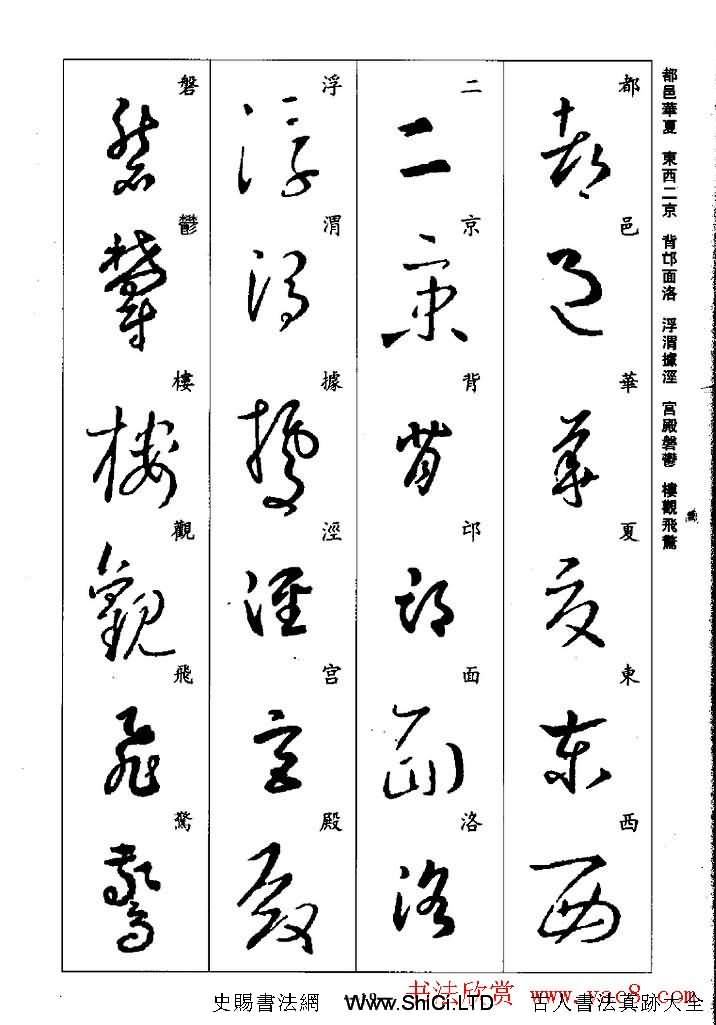 都邑華夏 東西二京 背邙面洛 浮渭據涇 宮殿磐鬱 樓觀飛驚
都邑華夏東西
二京背邙面洛
浮渭據涇宮殿
磐鬱樓觀飛驚
书法欣赏 www.yac8.com
史賜書法網 www.ShiCi.LTD 古人書法真跡大全